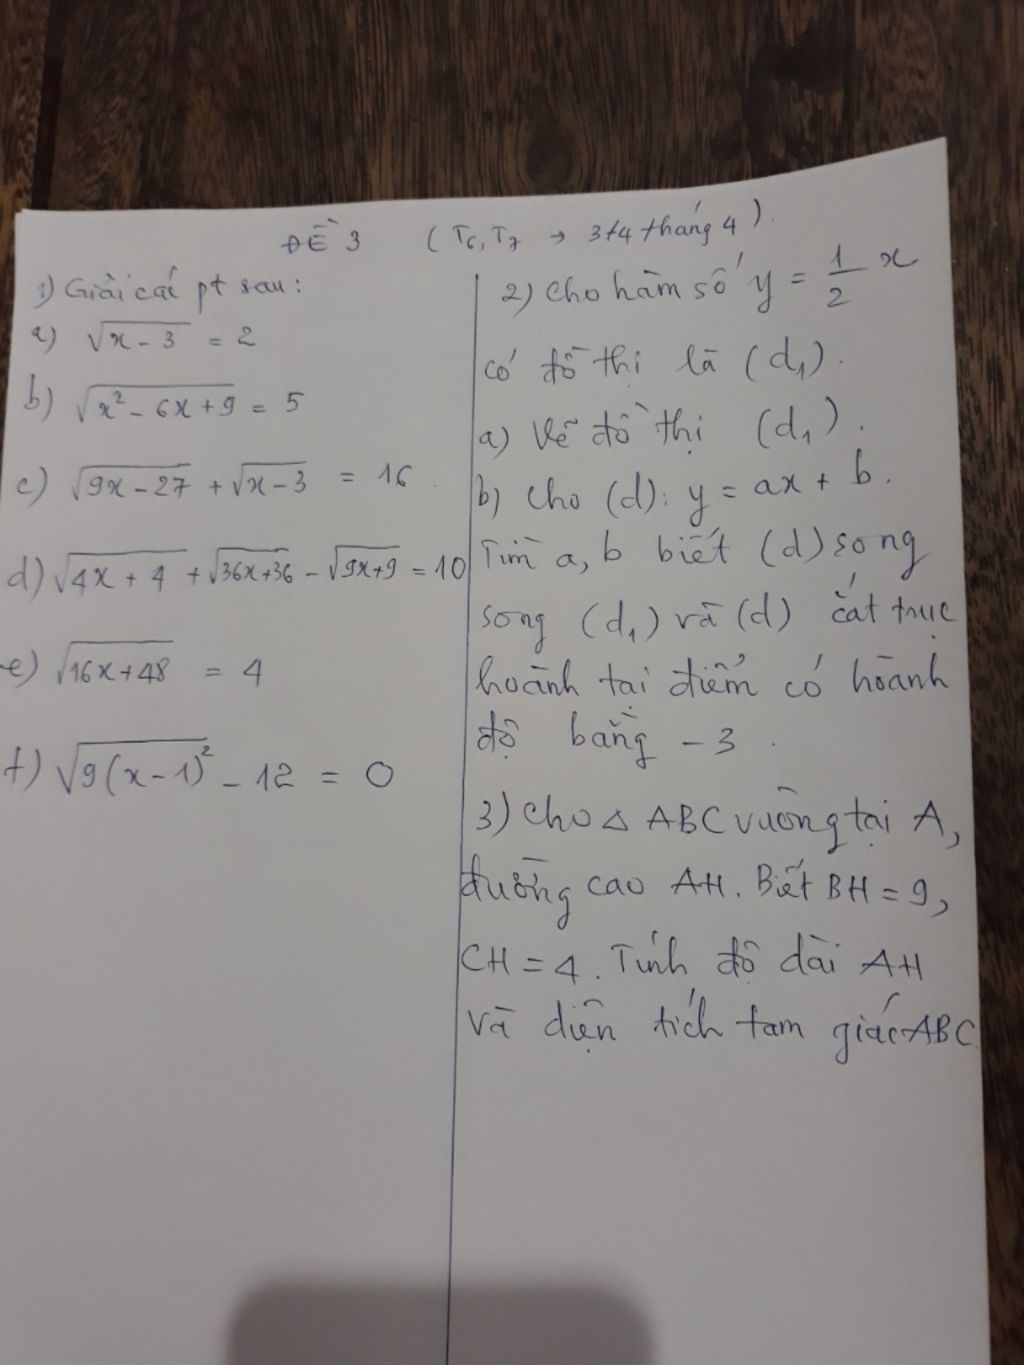 ĐỀ 3 (T6, T7 → 3+4 tháng 4).
1) Giải các pt sau:
a) √(x - 3) = 2
b) √(x² - 6x + 9) = 5
c) √(9x - 27) + √(x - 3) = 16.
d) √(4x + 4) + √(36x+36) - √(9x+9) = 10
e) √(16x+48) = 4
f) √(9(x-1)²) - 12 = 0
2) Cho hàm số y = 1/2 x
có đồ thị là (d₁).
a) Vẽ đồ thị (d₁).
b) Cho (d): y = ax + b.
Tìm a, b biết (d) song
song (d₁) và (d) cắt trục
hoành tại điểm có hoành
độ bằng -3.
3) Cho △ ABC vuông tại A,
đường cao AH. Biết BH = 9,
CH = 4. Tính độ dài AH
và diện tích tam giác ABC.